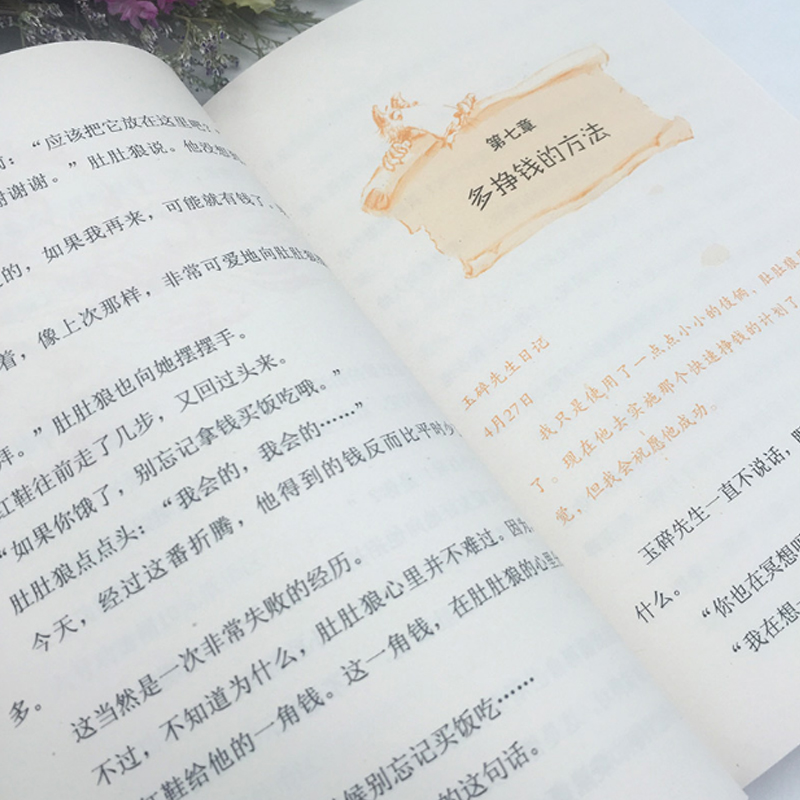 “应该把它放在这里吧？
谢谢。”肚肚狼说。他没想
的，如果我再来，可能就有钱了。
着，像上次那样，非常可爱地向肚肚狼
。”肚肚狼也向她摆摆手。
红鞋往前走了几步，又回过头来。
“如果你饿了，别忘记拿钱买饭吃哦。”
肚肚狼点点头：“我会的，我会的……”
今天，经过这番折腾，他得到的钱反而比平时少
多。
这当然是一次非常失败的经历。
不过，不知道为什么，肚肚狼心里并不难过。因为
红鞋给他的一角钱。这一角钱，在肚肚狼的心里
候别忘记买饭吃……
的这句话。
第七章
多挣钱的方法
玉碎先生日记
4月27日
我只是使用了一点点小小的伎俩，肚肚狼
了。现在他去实施那个快速挣钱的计划了
觉，但我会祝愿他成功。
玉碎先生一直不说话，
什么。
“你也在冥想吗
“我在想